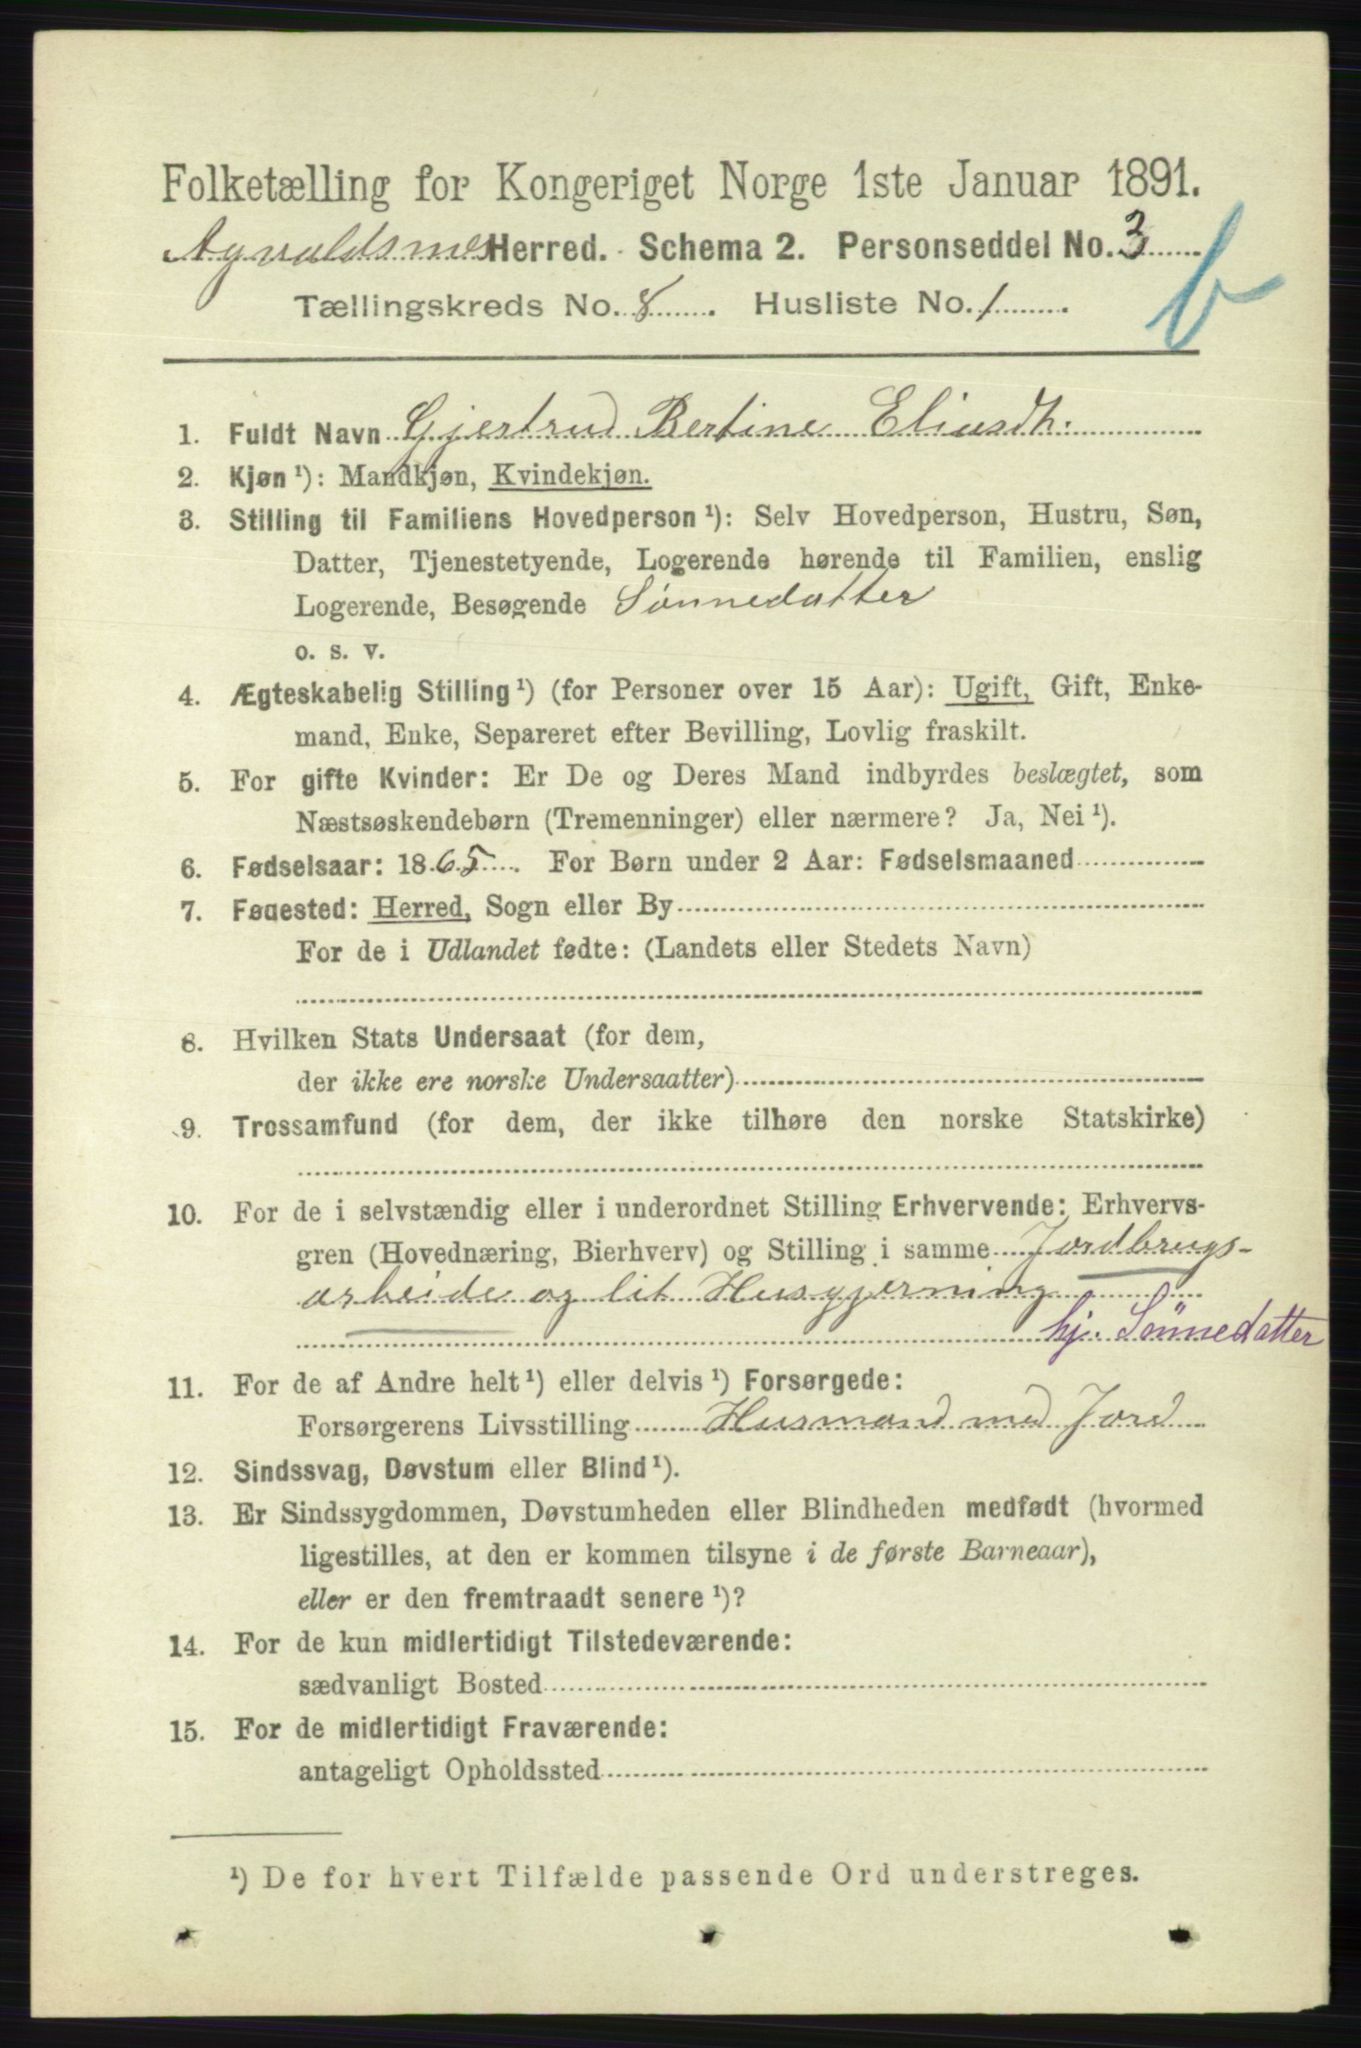 Folketælling for Kongeriget Norge 1ste Januar 1891.
Agvaldsnes Herred. Schema 2. Personseddel No. 3
b
Tællingskreds No. 8. Husliste No. 1.
1. Fuldt Navn Gjertrud Bertine Eliasdtr.
2. Kjøn ¹): Mandkjøn, Kvindekjøn.
3. Stilling til Familiens Hovedperson ¹): Selv Hovedperson, Hustru, Søn,
Datter, Tjenestetyende, Logerende hørende til Familien, enslig
Logerende, Besøgende Sønnedatter
o. s. v.
4. Ægteskabelig Stilling ¹) (for Personer over 15 Aar): Ugift, Gift, Enke-
mand, Enke, Separeret efter Bevilling, Lovlig fraskilt.
5. For gifte Kvinder: Er De og Deres Mand indbyrdes beslægtet, som
Næstsøskendebørn (Tremenninger) eller nærmere? Ja, Nei ¹).
6. Fødselsaar: 1865. For Børn under 2 Aar: Fødselsmaaned
7. Føaested: Herred, Sogn eller By
For de i Udlandet fødte: (Landets eller Stedets Navn)
8. Hvilken Stats Undersaat (for dem,
der ikke ere norske Undersaatter)
9. Trossamfund (for dem, der ikke tilhøre den norske Statskirke)
10. For de i selvstændig eller i underordnet Stilling Erhvervende: Erhvervs-
gren (Hovednæring, Bierhverv) og Stilling i samme Jordbrugs-
arbeide og lit Husgjerning
hj. Sönnedatter
11. For de af Andre helt ¹) eller delvis ¹) Forsørgede:
Forsørgerens Livsstilling Husmand med Jord
12. Sindssvag, Døvstum eller Blind ¹).
13. Er Sindssygdommen, Døvstumheden eller Blindheden medfødt (hvormed
ligestilles, at den er kommen tilsyne i de første Barneaar),
eller er den fremtraadt senere ¹)?
14. For de kun midlertidigt Tilstedeværende:
sædvanligt Bosted
15. For de midlertidigt Fraværende:
antageligt Opholdssted
¹) De for hvert Tilfælde passende Ord understreges.